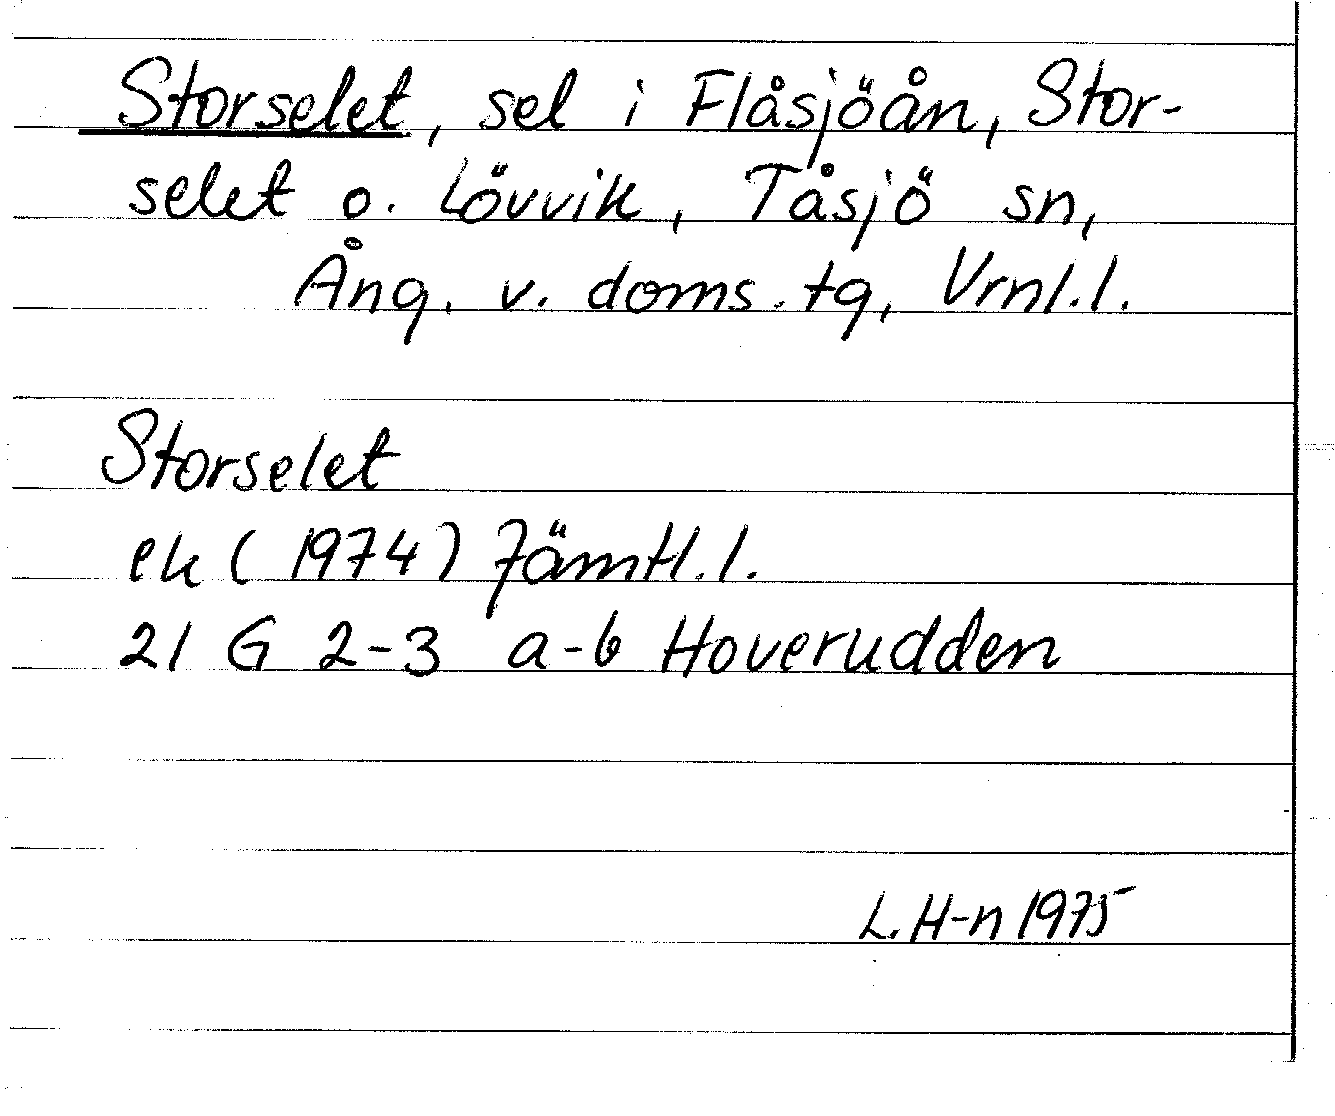 Storselet, sel i Flåsjöån, Stor-
selet o. Lövvik, Tåsjö sn,
Ång. v. doms. tg, Vrnl.l.
Storselet
ek (1974) Jämtl.l.
21 G 2-3 a-b Hoverudden
L. H-n 1975